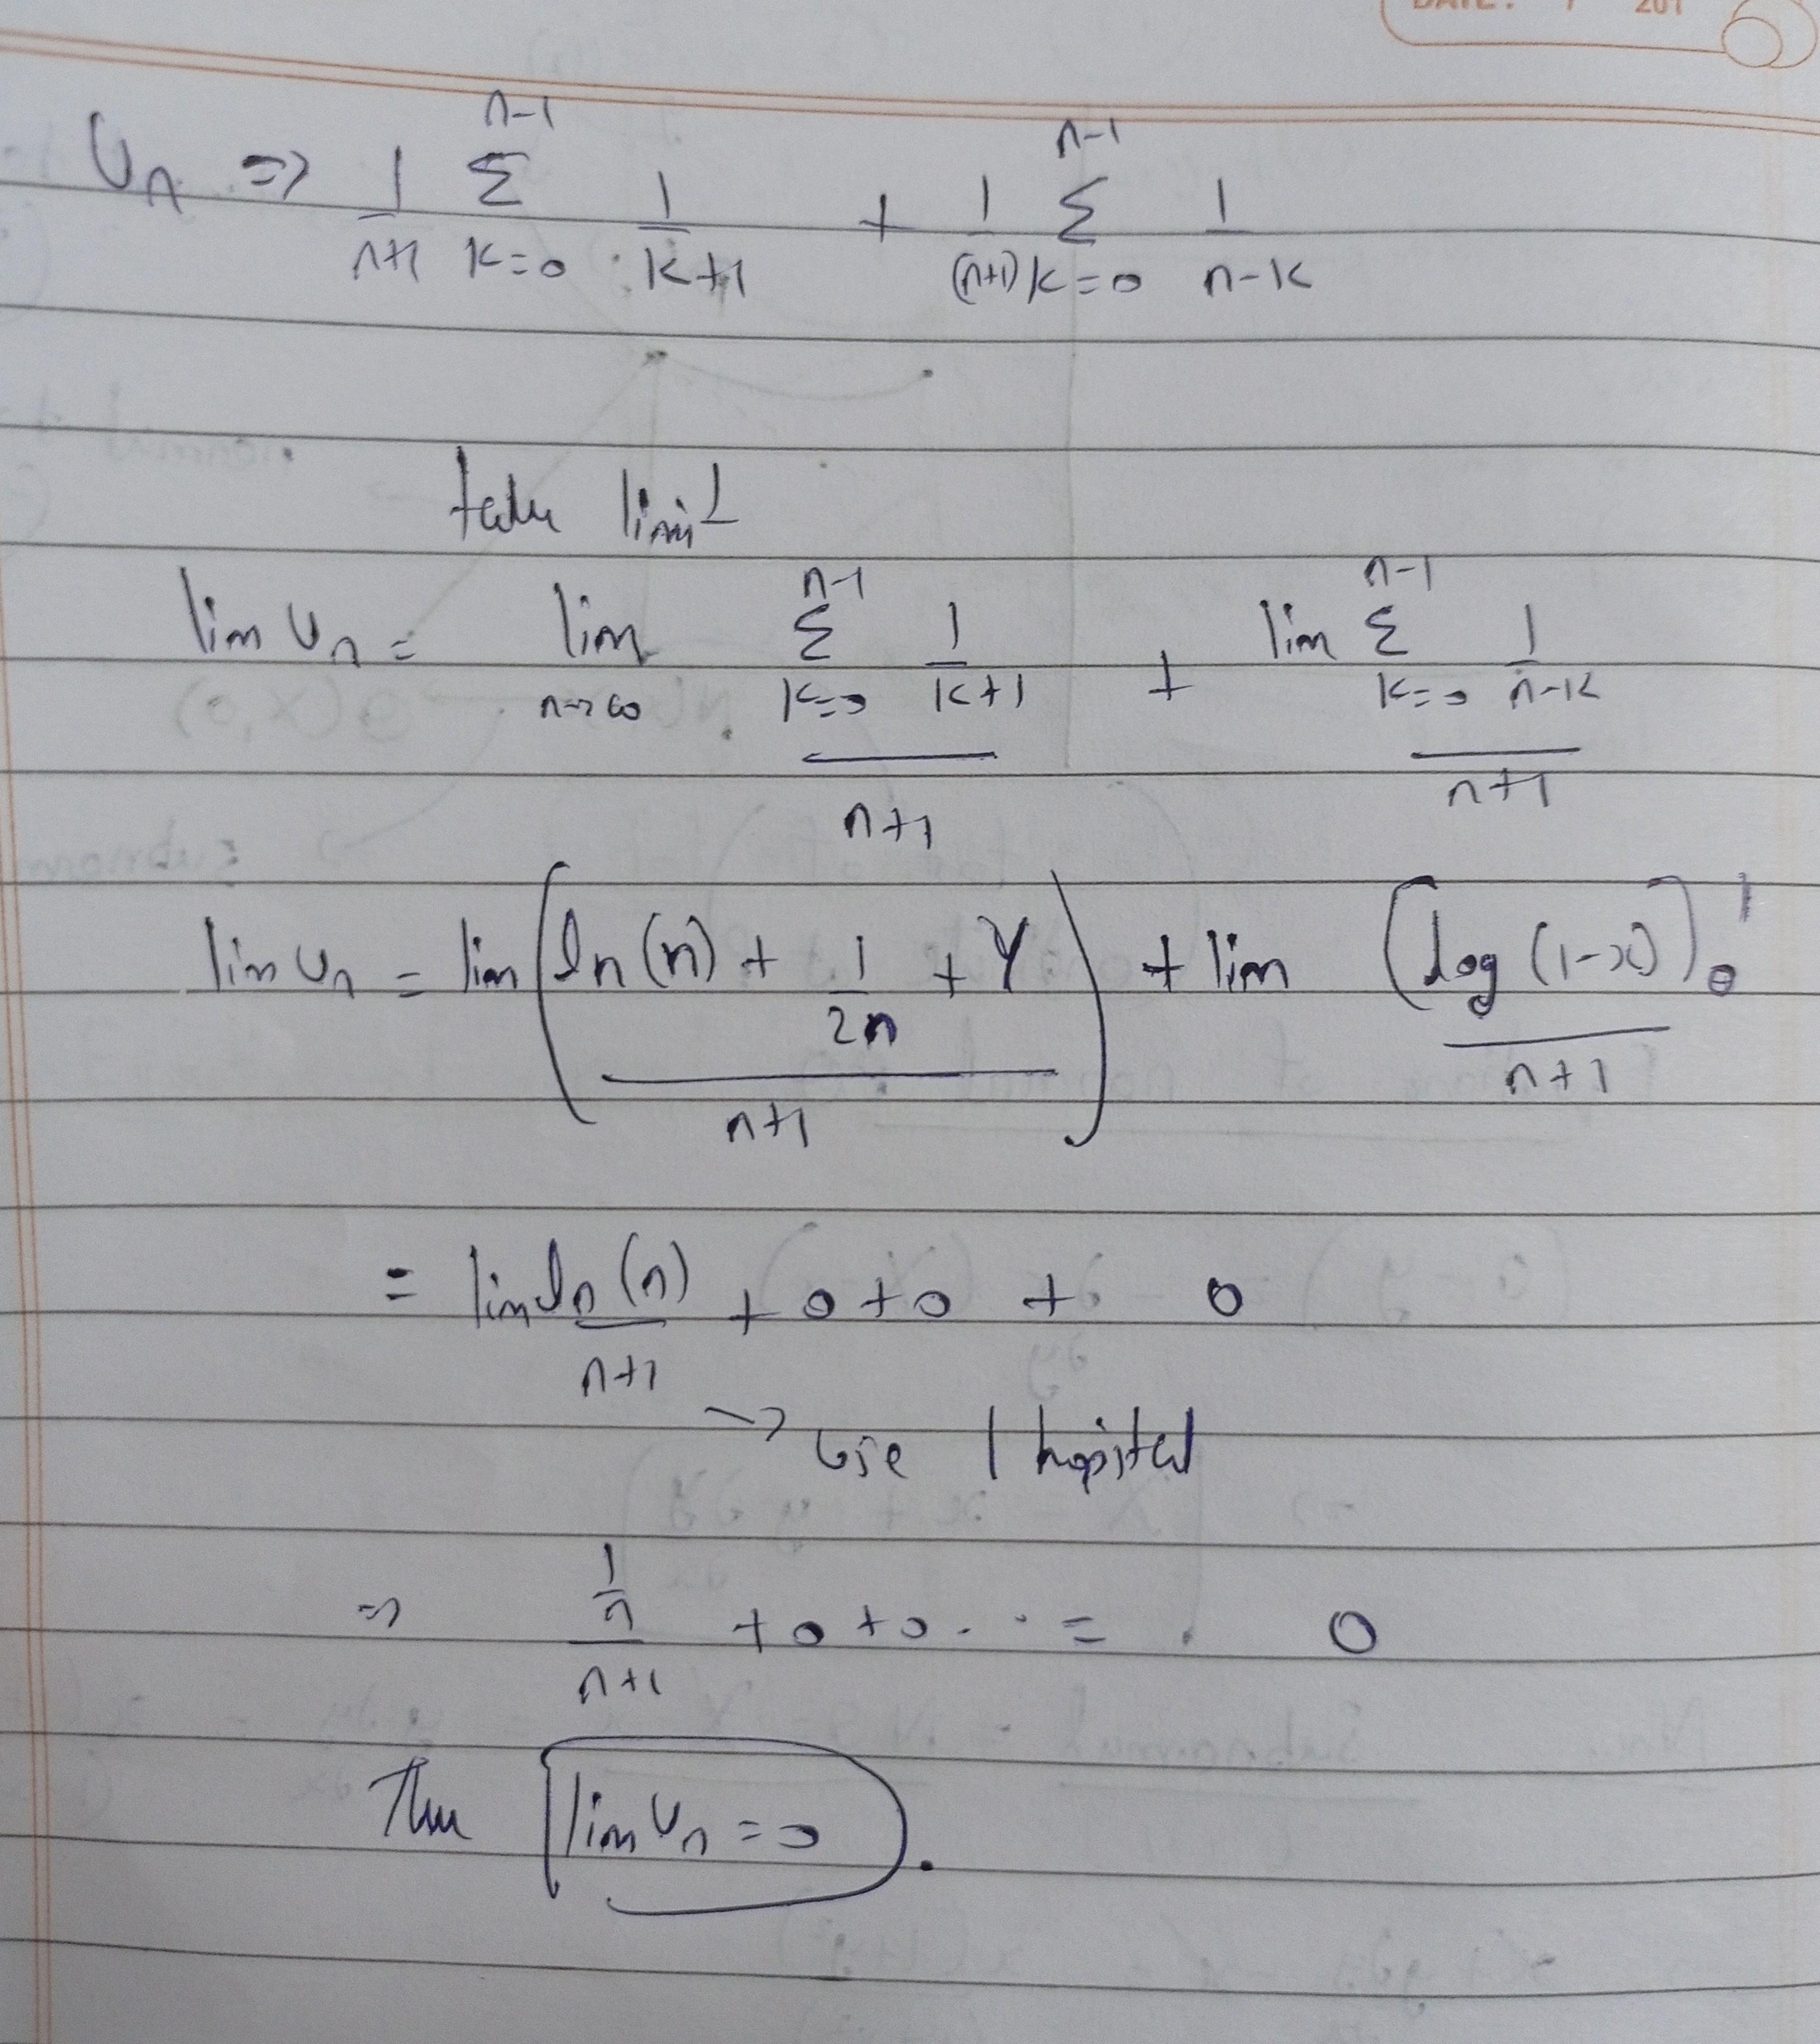 DATE: / 201
Un => 1/(n+1) Σ_{k=0}^{n-1} 1/(k+1) + 1/(n+1) Σ_{k=0}^{n-1} 1/(n-k)
take limit
lim Un = lim_{n→∞} (Σ_{k=0}^{n-1} 1/(k+1))/(n+1) + lim (Σ_{k=0}^{n-1} 1/(n-k))/(n+1)
lim Un = lim ((ln(n) + 1/(2n) + γ)/(n+1)) + lim (log(1-x))_0^1/(n+1)
= lim ln(n)/(n+1) + 0 + 0 + 0
→ use l hopital
=> (1/n)/(n+1) + 0 + 0 . . . = 0
Thus lim Un = 0.